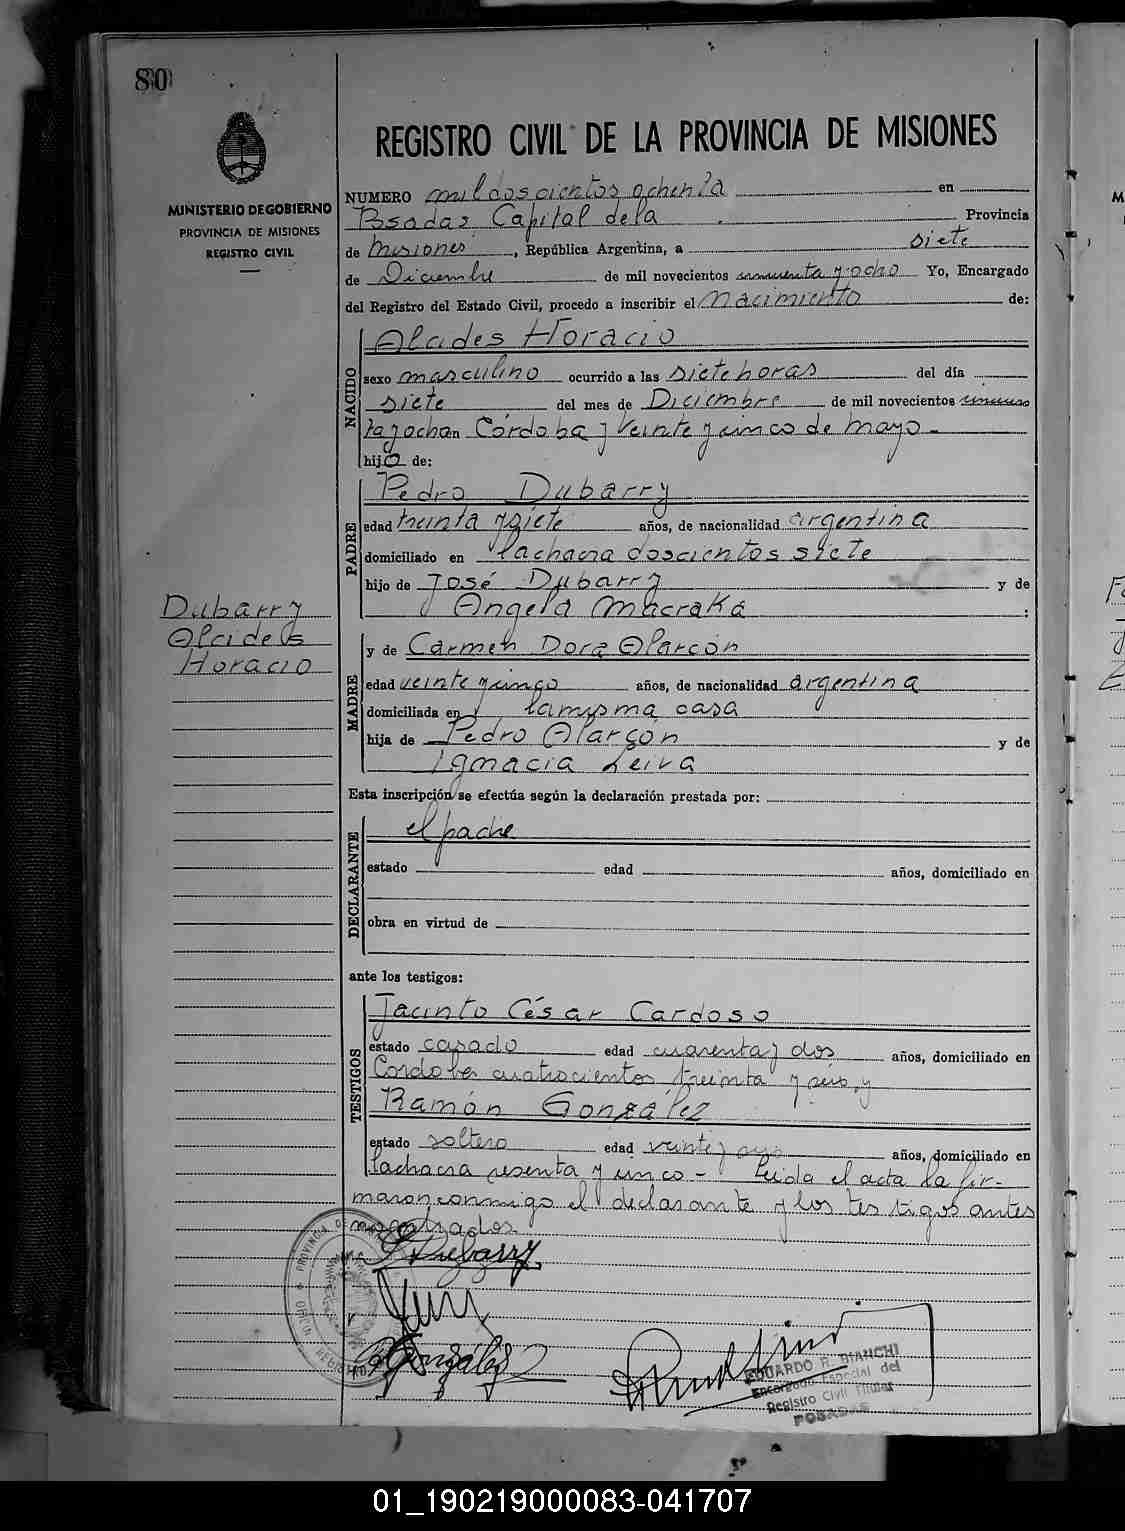 80
MINISTERIO DE GOBIERNO
PROVINCIA DE MISIONES
REGISTRO CIVIL
Dubarry
Alcides
Horacio
REGISTRO CIVIL DE LA PROVINCIA DE MISIONES
NUMERO mil doscientos ochenta en
Posadas Capital de la Provincia
de Misiones, República Argentina, a siete
de Diciembre de mil novecientos cincuenta y ocho Yo, Encargado
del Registro del Estado Civil, procedo a inscribir el Nacimiento de:
NACIDO
Alcides Horacio
sexo masculino ocurrido a las siete horas del día
siete del mes de Diciembre de mil novecientos cincuen
ta y ocho en Córdoba y Veinte y cinco de Mayo.-
hijo de:
PADRE
Pedro Dubarry
edad treinta y siete años, de nacionalidad argentina
domiciliado en la chacra doscientos siete
hijo de José Dubarry y de
Angela Macraka;
MADRE
y de Carmen Dora Alarcón
edad veinte y cinco años, de nacionalidad argentina
domiciliada en la misma casa
hija de Pedro Alarcón y de
Ignacia Leiva
Esta inscripción se efectúa según la declaración prestada por:
DECLARANTE
el padre
estado edad años, domiciliado en
obra en virtud de
ante los testigos:
TESTIGOS
Jacinto César Cardoso
estado casado edad cuarenta y dos años, domiciliado en
Cordoba cuatrocientos treinta y seis, y
Ramón González
estado soltero edad veinte y años, domiciliado en
la chacra sesenta y cinco - Leida el acta la fir-
maron conmigo el declarante y los testigos antes
nombrados.
P. Dubarry.
R González
EDUARDO R. BIANCHI
Encargado Especial del
Registro Civil Titular
POSADAS
01_190219000083-041707